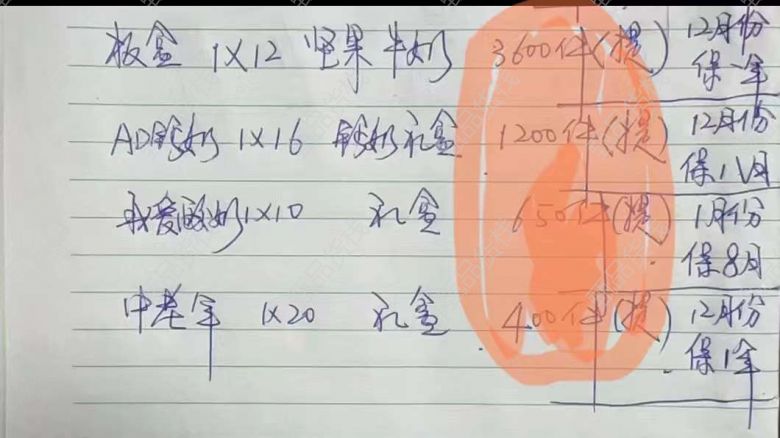 板盒 1×12 坚果牛奶 3600件(提) 12月份
保一年
AD钙奶 1×16 钙奶礼盒 1200件(提) 12月份
保1八月
我爱酸奶1×10 礼盒 650件(提) 1月份
保8月
中老年 1×20 礼盒 400件(提) 12月份
保1年